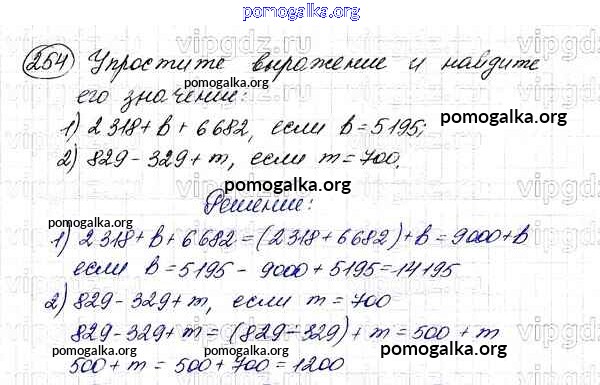 pomogalka.org
254 Упростите выражение и найдите
pomogalka.org
его значение:
1) 2318 + b + 6682, если b = 5195;
pomogalka.org
2) 829 - 329 + m, если m = 700.
pomogalka.org
Решение:
pomogalka.org
1) 2318 + b + 6682 = (2318 + 6682) + b = 9000 + b
если b = 5195 - 9000 + 5195 = 14195
2) 829 - 329 + m, если m = 700
829 - 329 + m = (829 - 329) + m = 500 + m
pomogalka.org pomogalka.org pomogalka.org
500 + m = 500 + 700 = 1200